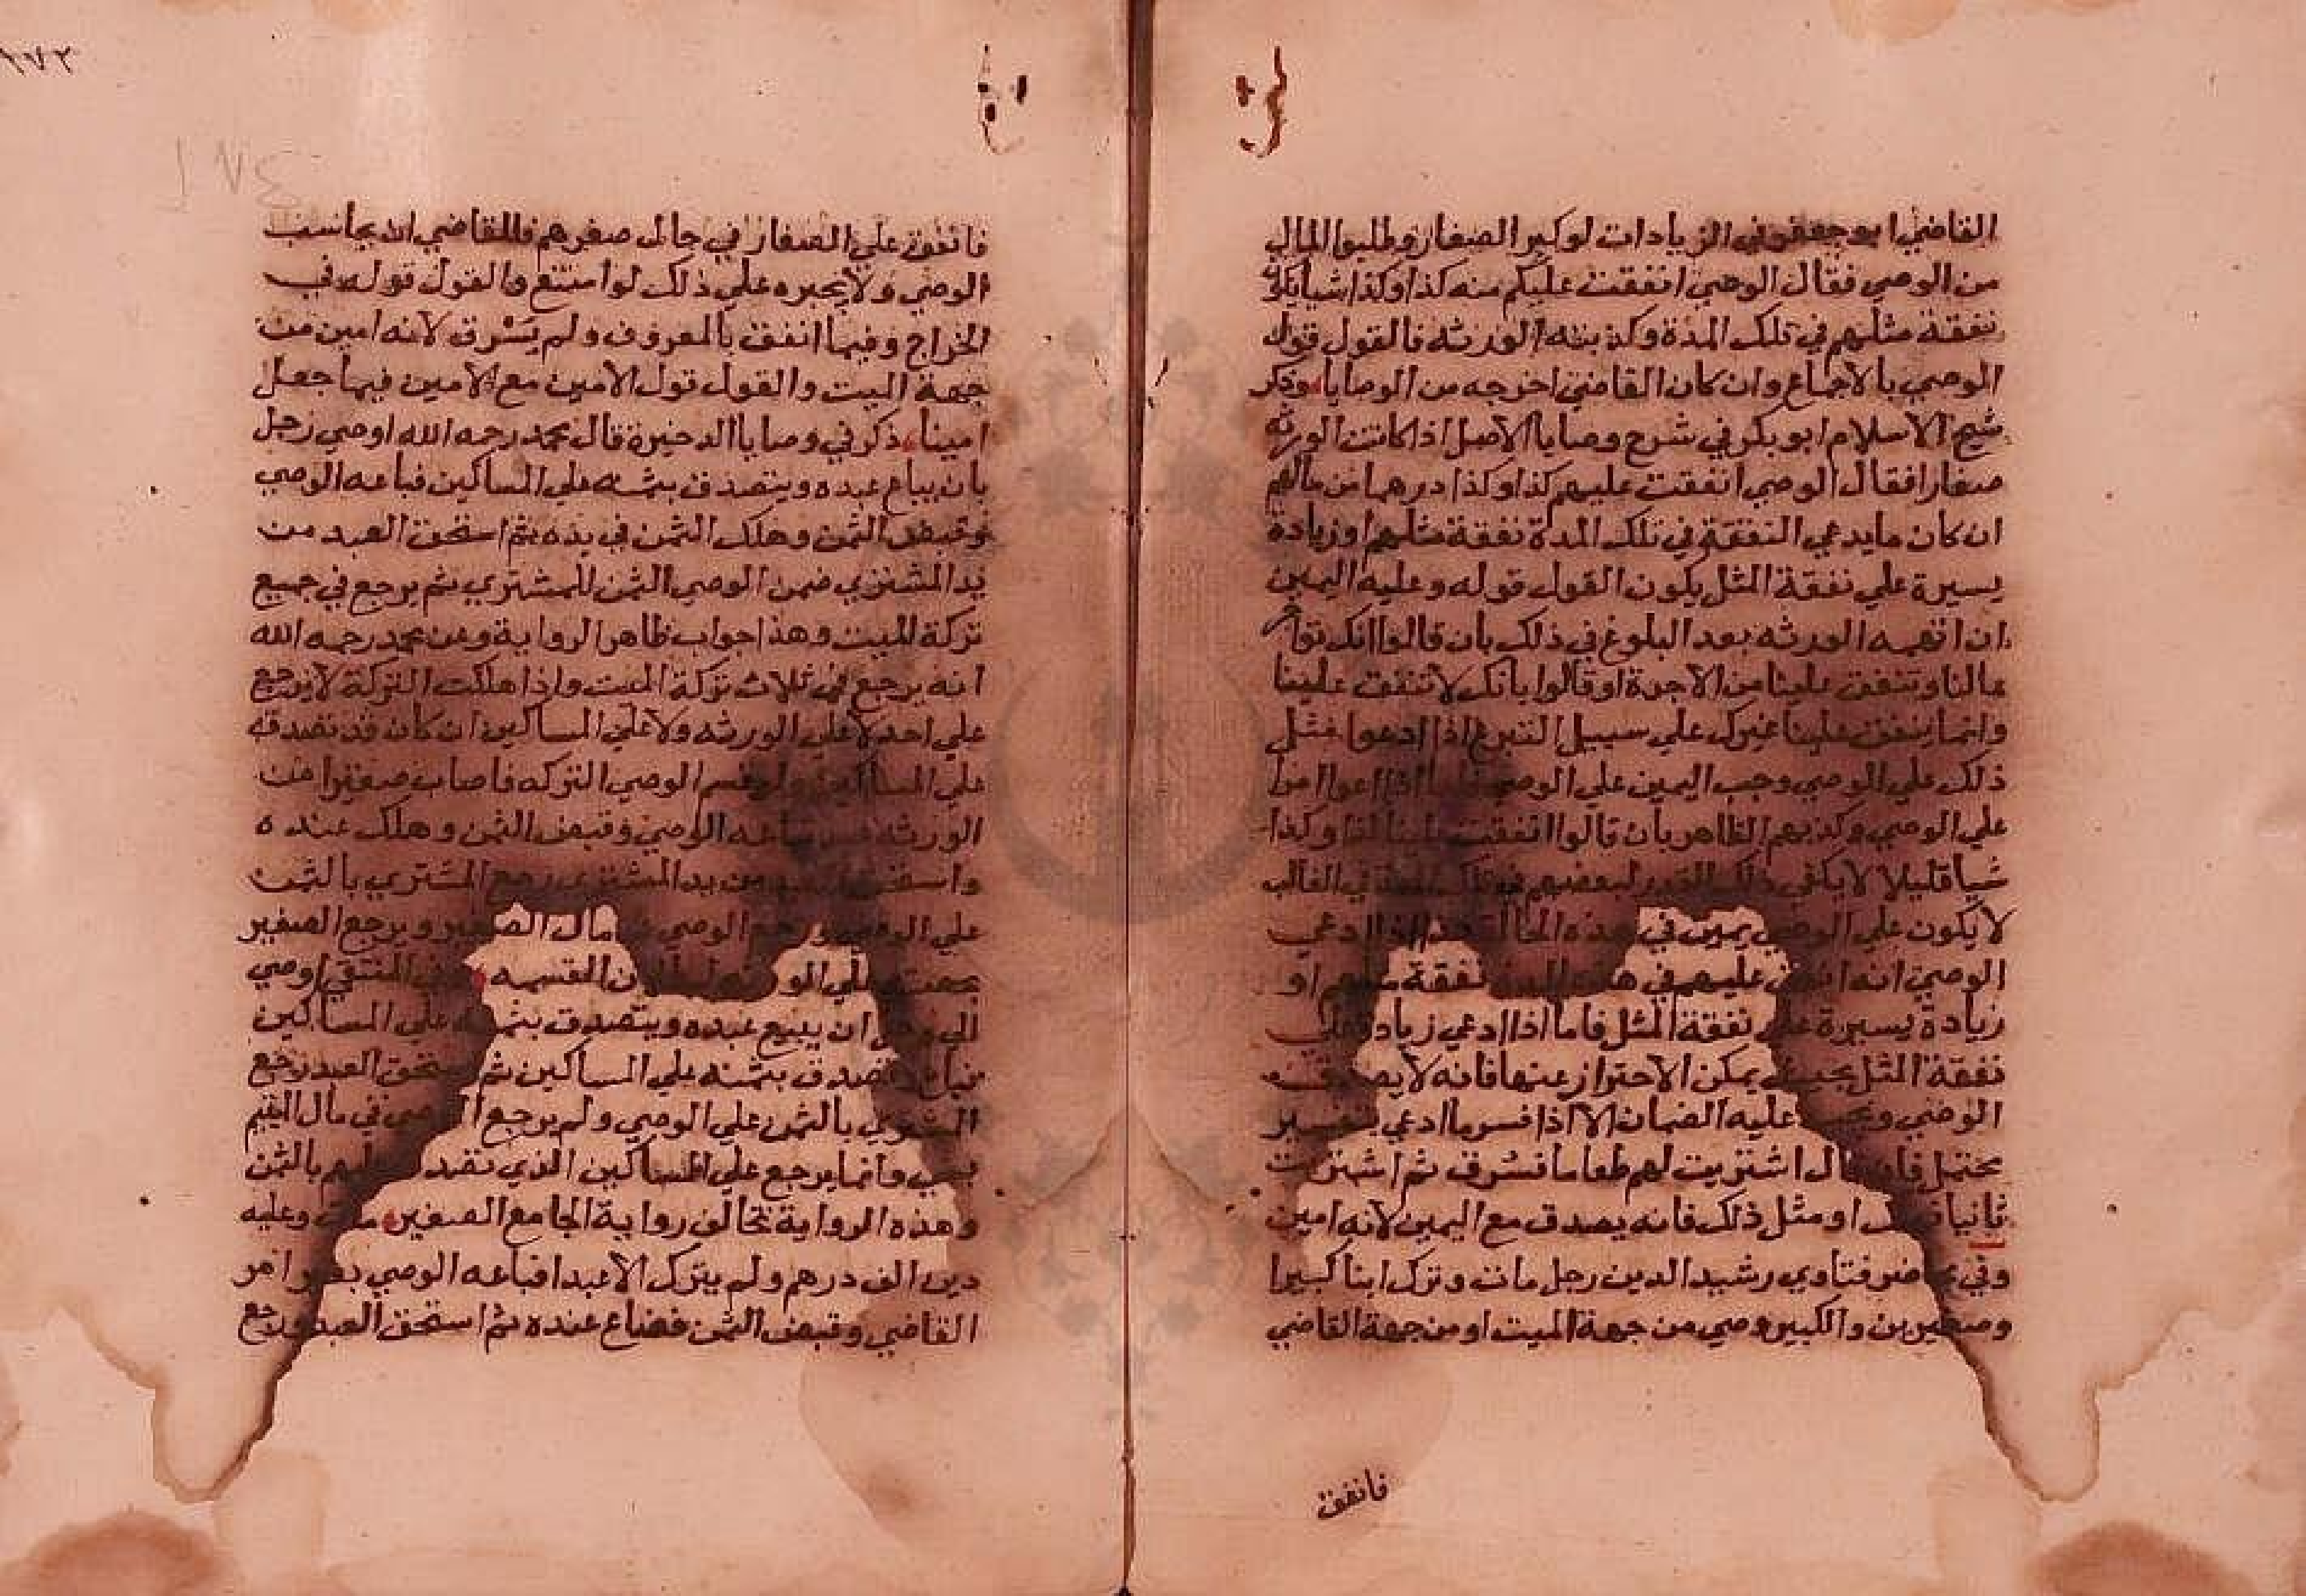 القاضي ابو جعفر في الزيادات لو كبر الصغار وطلبوا المال
من الوصي فقال الوصي انفقت عليكم منه كذا وكذا شيا يكو
نفقة مثلهم في تلك المدة وكذبته الورثه فالقول قول
الوصي بالاجماع وان كان القاضي اخرجه من الوصايا وذكر
شيخ الاسلام ابو بكر في شرح وصايا الاصل اذا كانت الورثه
صغارا فقال الوصي انفقت عليهم كذا وكذا درهما من مالهم
ان كان ما يدعي النفقة في تلك المدة نفقة مثلهم او زيادة
يسيرة علي نفقة المثل يكون القول قوله وعليه اليمين
ان اتهمه الورثه بعد البلوغ في ذلك بان قالوا انك
مالنا وتنفق علينا من الاجرة او قالوا بانك لا تنفق علينا
وانما ينفق علينا غيرك علي سبيل التبرع اذا ادعوا مثل
ذلك علي الوصي وجب اليمين علي الوصي اذا ادعوا
علي الوصي وكذبهم الظاهر بان قالوا انفقت علينا كذا وكذا
شيا قليلا لا يكفي ذلك القدر لبعضهم في تلك المدة في الغالب
لا يكون علي الوصي يمين في هذه الحالة هذا اذا ادعي
الوصي انه انفق عليهم في هذه المدة نفقة مثلهم او
زيادة يسيرة علي نفقة المثل فاما اذا ادعي زيادة علي
نفقة المثل بحيث يمكن الاحتراز عنها فانه لا يصدق
الوصي وتجب عليه الضمان الا اذا فسر ما ادعي بتفسير
محتمل فان قال اشتريت لهم طعاما فسرق ثم اشتريت
ثانيا او مثل ذلك فانه يصدق مع اليمين لانه امين
وفي فتاوي رشيد الدين رجل مات وترك ابنا كبيرا
وصغيرين والكبير وصي من جهة الميت او من جهة القاضي
فانفق
١٧٤
فانفق علي الصغار في حال صغرهم فللقاضي ان يحاسب
الوصي ولا يجبره علي ذلك لو امتنع والقول قوله في
الخراج وفيما انفق بالمعروف ولم يسرف لانه امين من
جهة الميت والقول قول الامين مع الامين فيما جعل
امينا ذكر في وصايا الدخيرة قال محمد رحمه الله اوصي رجل
بان يباع عبده ويتصدق بثمنه علي المساكين فباعه الوصي
وقبض الثمن وهلك الثمن في يده ثم استحق العبد من
يد المشتري ضمن الوصي الثمن للمشتري ثم يرجع في جميع
تركة الميت وهذا جواب ظاهر الرواية وعن محمد رحمه الله
انه يرجع في ثلاث تركة الميت واذا هلكت التركة لا يرجع
علي احد لا علي الورثه ولا علي المساكين ان كان قد تصدق به
علي المساكين ولو قسم الوصي التركه فاصاب صغيرا من
الورثه عبد باعه الوصي وقبض الثمن وهلك عنده
واستحق العبد من يد المشتري رجع المشتري بالثمن
علي الوصي ورجع الوصي في مال الصغير ويرجع الصغير
بحصته علي الورثه لبطلان القسمه المنتقي اوصي
الي رجل ان يبيع عبده ويتصدق بثمنه علي المساكين
فباع وتصدق بثمنه علي المساكين ثم استحق العبد رجع
المشتري بالثمن علي الوصي ولم يرجع الوصي في مال اليتيم
بشي وانما يرجع علي المساكين الذي تصدق عليهم بالثمن
وهذه الرواية تخالف رواية الجامع الصغير مات وعليه
دين الف درهم ولم يترك الا عبدا فباعه الوصي بغير امر
القاضي وقبض الثمن فضاع عنده ثم استحق العبد ورجع